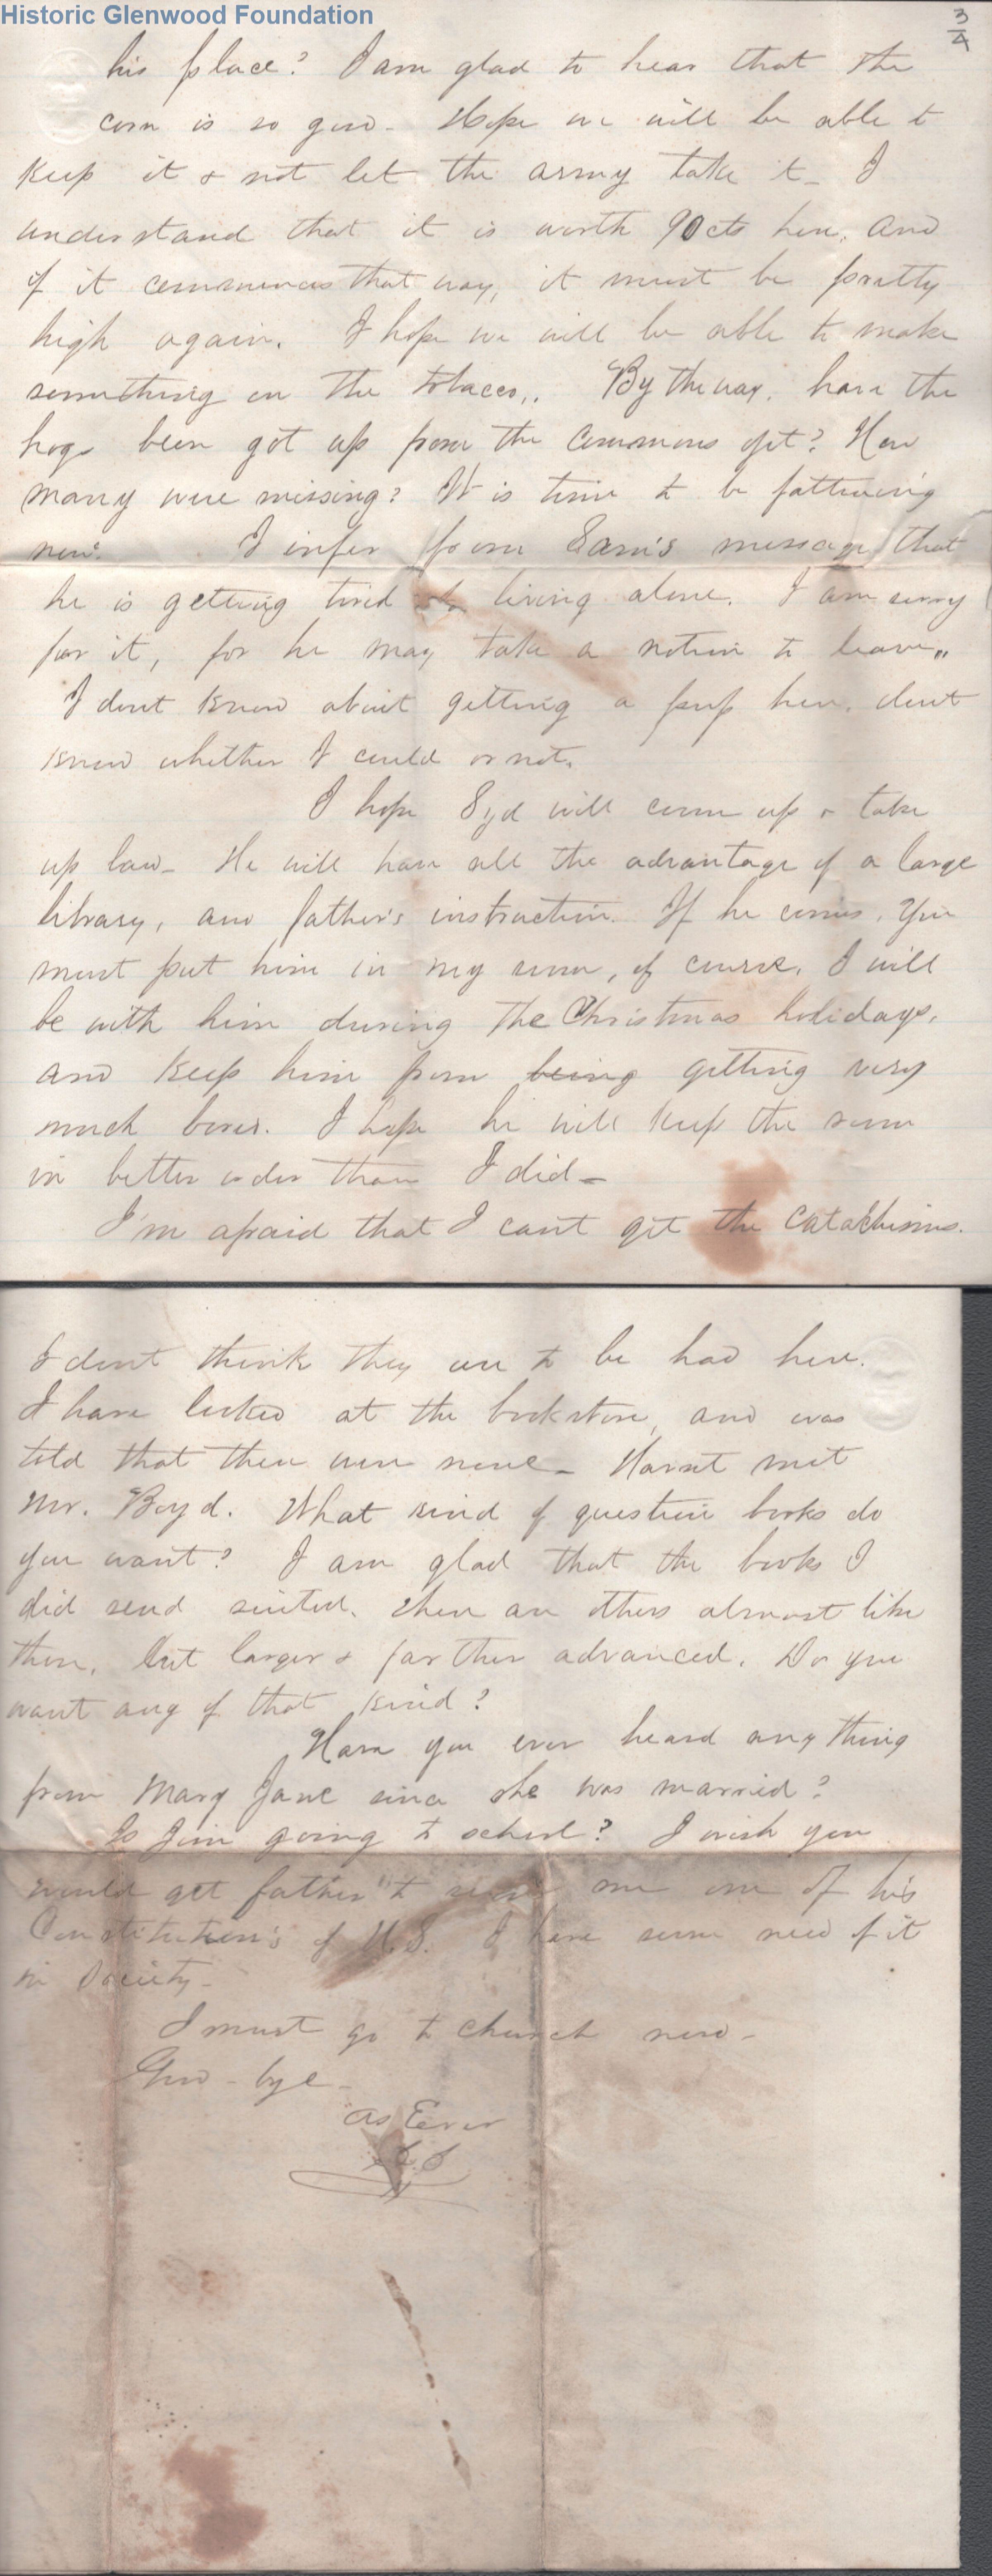 Historic Glenwood Foundation
3/4
his place? I am glad to hear that the
corn is so good - Hope we will be able to
keep it & not let the army take it - I
understand that it is worth 90cts here, and
if it commences that way, it must be pretty
high again. I hope we will be able to make
something on the tobacco,. By the way, have the
hogs been got up from the commons yet? How
many were missing? It is time to be fattening
now. I infer from Sam's message that
he is getting tired of living alone. I am sorry
for it, for he may take a notion to leave,,
I dont know about getting a pup here, dont
know whether I could or not.
I hope Syd will come up & take
up law - He will have all the advantage of a large
library, and father's instruction. If he comes, you
must put him in my room, of course. I will
be with him during the Christmas holidays,
and keep him from being getting very
much bored. I hope he will keep the room
in better order than I did -
I'm afraid that I cant get the Catachisms.
I dont think they are to be had here.
I have looked at the bookstore, and was
told that there were none - Havnt met
Mr. Boyd. What kind of question books do
you want? I am glad that the books I
did send suited. there are others almost like
them, but larger & farther advanced. Do you
want any of that kind?
Have you ever heard any thing
from Mary Jane since she was married?
Is Jim going to school? I wish you
would get father to send me one of his
Constitution's of U.S. I have some need of it
in Society -
I must go to church now -
Good-bye -
As Ever